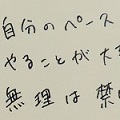 自分のペース
やることが大
無理は禁